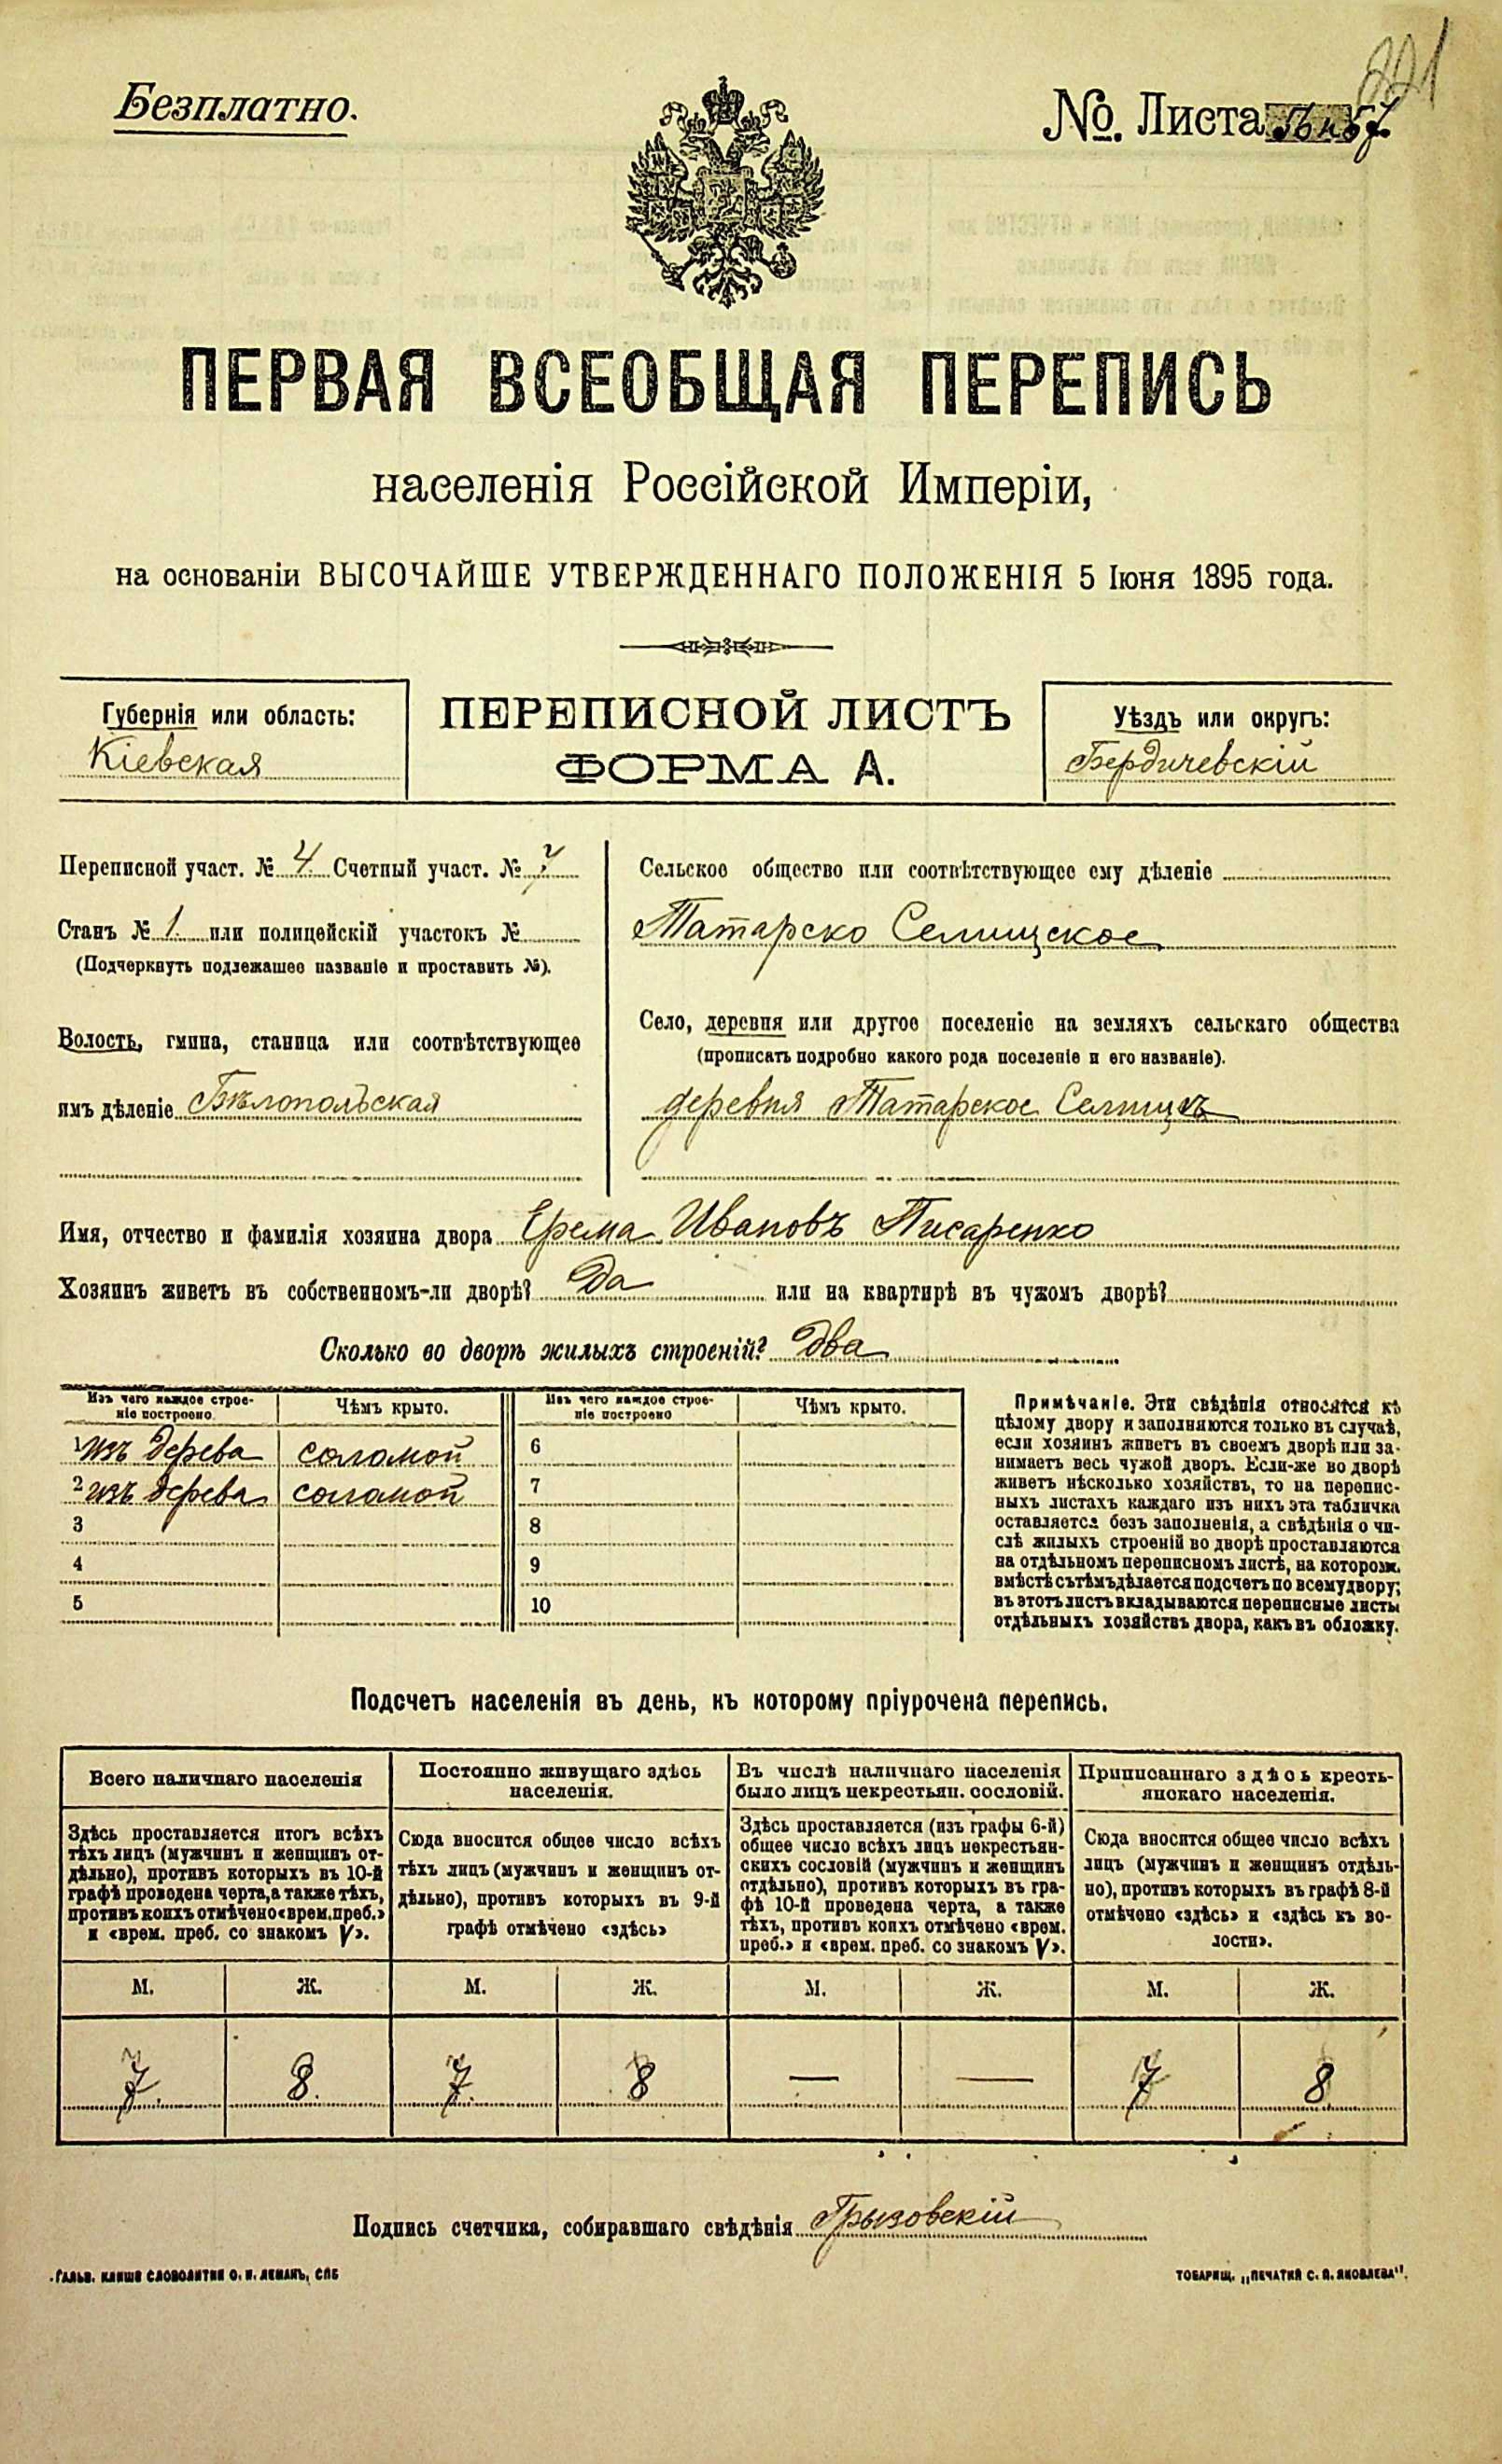 221
Безплатно.
№. Листа 56 и 57.
ПЕРВАЯ ВСЕОБЩАЯ ПЕРЕПИСЬ
населенія Россійской Имперіи,
на основаніи ВЫСОЧАЙШЕ УТВЕРЖДЕННАГО ПОЛОЖЕНІЯ 5 Іюня 1895 года.
Губернія или область:
Кіевская
ПЕРЕПИСНОЙ ЛИСТЪ
ФОРМА А.
Уѣздъ или округъ:
Бердичевскій
Переписной участ. № 4. Счетный участ. № 7
Станъ № 1. или полицейскій участокъ №
(Подчеркнуть подлежащее названіе и проставить №).
Волость, гмина, станица или соотвѣтствующее
имъ дѣленіе Бѣлопольская
Сельское общество или соотвѣтствующее ему дѣленіе
Татарско Селищское
Село, деревня или другое поселеніе на земляхъ сельскаго общества
(прописать подробно какого рода поселеніе и его названіе).
деревня Татарское Селище
Имя, отчество и фамилія хозяина двора Ерема Ивановъ Писаренко
Хозяинъ живетъ въ собственномъ-ли дворѣ? Да или на квартирѣ въ чужомъ дворѣ?
Сколько во дворѣ жилыхъ строеній? два
Изъ чего каждое строе-
ніе построено.
Чѣмъ крыто.
Изъ чего каждое строе-
ніе построено
Чѣмъ крыто.
1 изъ дерева соломой 6
2 изъ дерева соломой 7
3 8
4 9
5 10
Примѣчаніе. Эти свѣдѣнія относятся къ
цѣлому двору и заполняются только въ случаѣ,
если хозяинъ живетъ въ своемъ дворѣ или за-
нимаетъ весь чужой дворъ. Если-же во дворѣ
живетъ нѣсколько хозяйствъ, то на перепис-
ныхъ листахъ каждаго изъ нихъ эта табличка
оставляется безъ заполненія, а свѣдѣнія о чи-
слѣ жилыхъ строеній во дворѣ проставляются
на отдѣльномъ переписномъ листѣ, на которомъ
вмѣстѣ съ тѣмъ дѣлается подсчетъ по всему двору;
въ этотъ листъ вкладываются переписные листы
отдѣльныхъ хозяйствъ двора, какъ въ обложку.
Подсчетъ населенія въ день, къ которому пріурочена перепись.
Всего наличнаго населенія
Здѣсь проставляется итогъ всѣхъ
тѣхъ лицъ (мужчинъ и женщинъ от-
дѣльно), противъ которыхъ въ 10-й
графѣ проведена черта, а также тѣхъ,
противъ коихъ отмѣчено «врем. преб.»
и «врем. преб. со знакомъ V».
Постоянно живущаго здѣсь
населенія.
Сюда вносится общее число всѣхъ
тѣхъ лицъ (мужчинъ и женщинъ от-
дѣльно), противъ которыхъ въ 9-й
графѣ отмѣчено «здѣсь»
Въ числѣ наличнаго населенія
было лицъ некрестьян. сословій.
Здѣсь проставляется (изъ графы 6-й)
общее число всѣхъ лицъ некрестьян-
скихъ сословій (мужчинъ и женщинъ
отдѣльно), противъ которыхъ въ гра-
фѣ 10-й проведена черта, а также
тѣхъ, противъ коихъ отмѣчено «врем.
преб.» и «врем. преб. со знакомъ V».
Приписаннаго здѣсь кресть-
янскаго населенія.
Сюда вносится общее число всѣхъ
лицъ (мужчинъ и женщинъ отдѣль-
но), противъ которыхъ въ графѣ 8-й
отмѣчено «здѣсь» и «здѣсь къ во-
лости».
М. Ж. М. Ж. М. Ж. М. Ж.
7. 8. 7. 8 — — 7 8
Подпись счетчика, собиравшаго свѣдѣнія Грызовскій
Гальв. клише словолитни О. И. Леманъ, СПБ
Товарищ. „Печатня С. П. Яковлева".